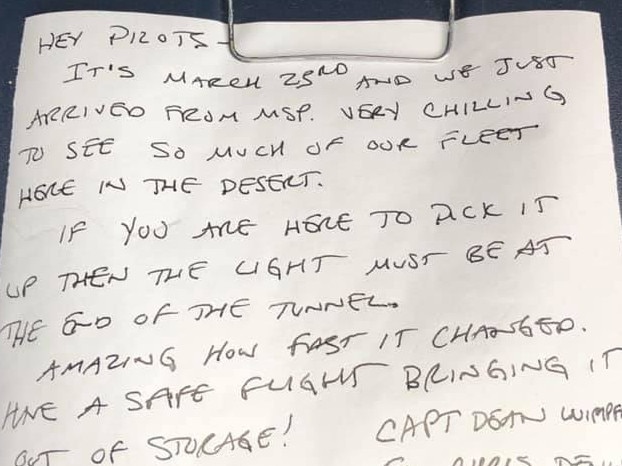 HEY PILOTS -
IT'S MARCH 23RD AND WE JUST
ARRIVED FROM MSP. VERY CHILLING
TO SEE SO MUCH OF OUR FLEET
HERE IN THE DESERT.
IF YOU ARE HERE TO PICK IT
UP THEN THE LIGHT MUST BE AT
THE END OF THE TUNNEL.
AMAZING HOW FAST IT CHANGED.
HAVE A SAFE FLIGHT BRINGING IT
OUT OF STORAGE! CAPT DEAN
CHRIS